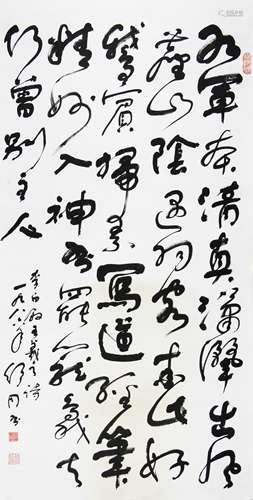 右軍本清真瀟灑出風
塵山陰遇羽客此好
鵝賓掃素寫道經筆
精妙入神書罷籠鵝去
何曾別主人
李白王羲之詩
一九八年舒同書